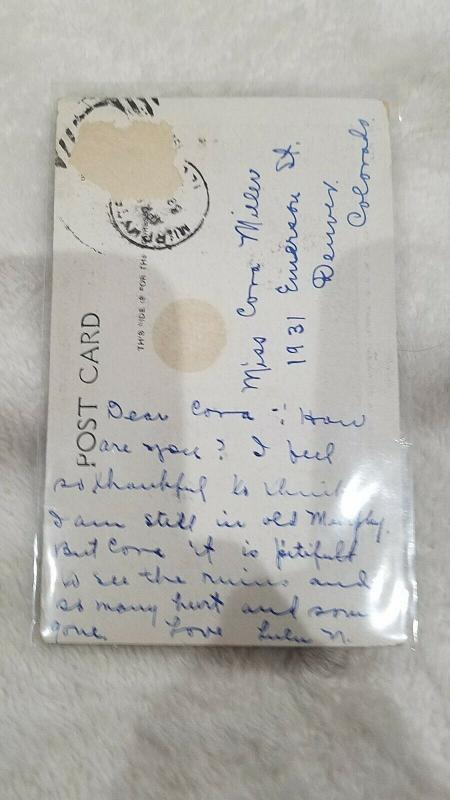 POST CARD
THIS SIDE IS FOR THE
Miss Cora Miller
1931 Emerson St.
Denver
Colorado
Dear Cora :- How
are you? I feel
so thankful to think
I am still in old Murphy.
But Cora it is pitifull
to see the ruins and
so many hurt and some
gone. Love Lulu N.